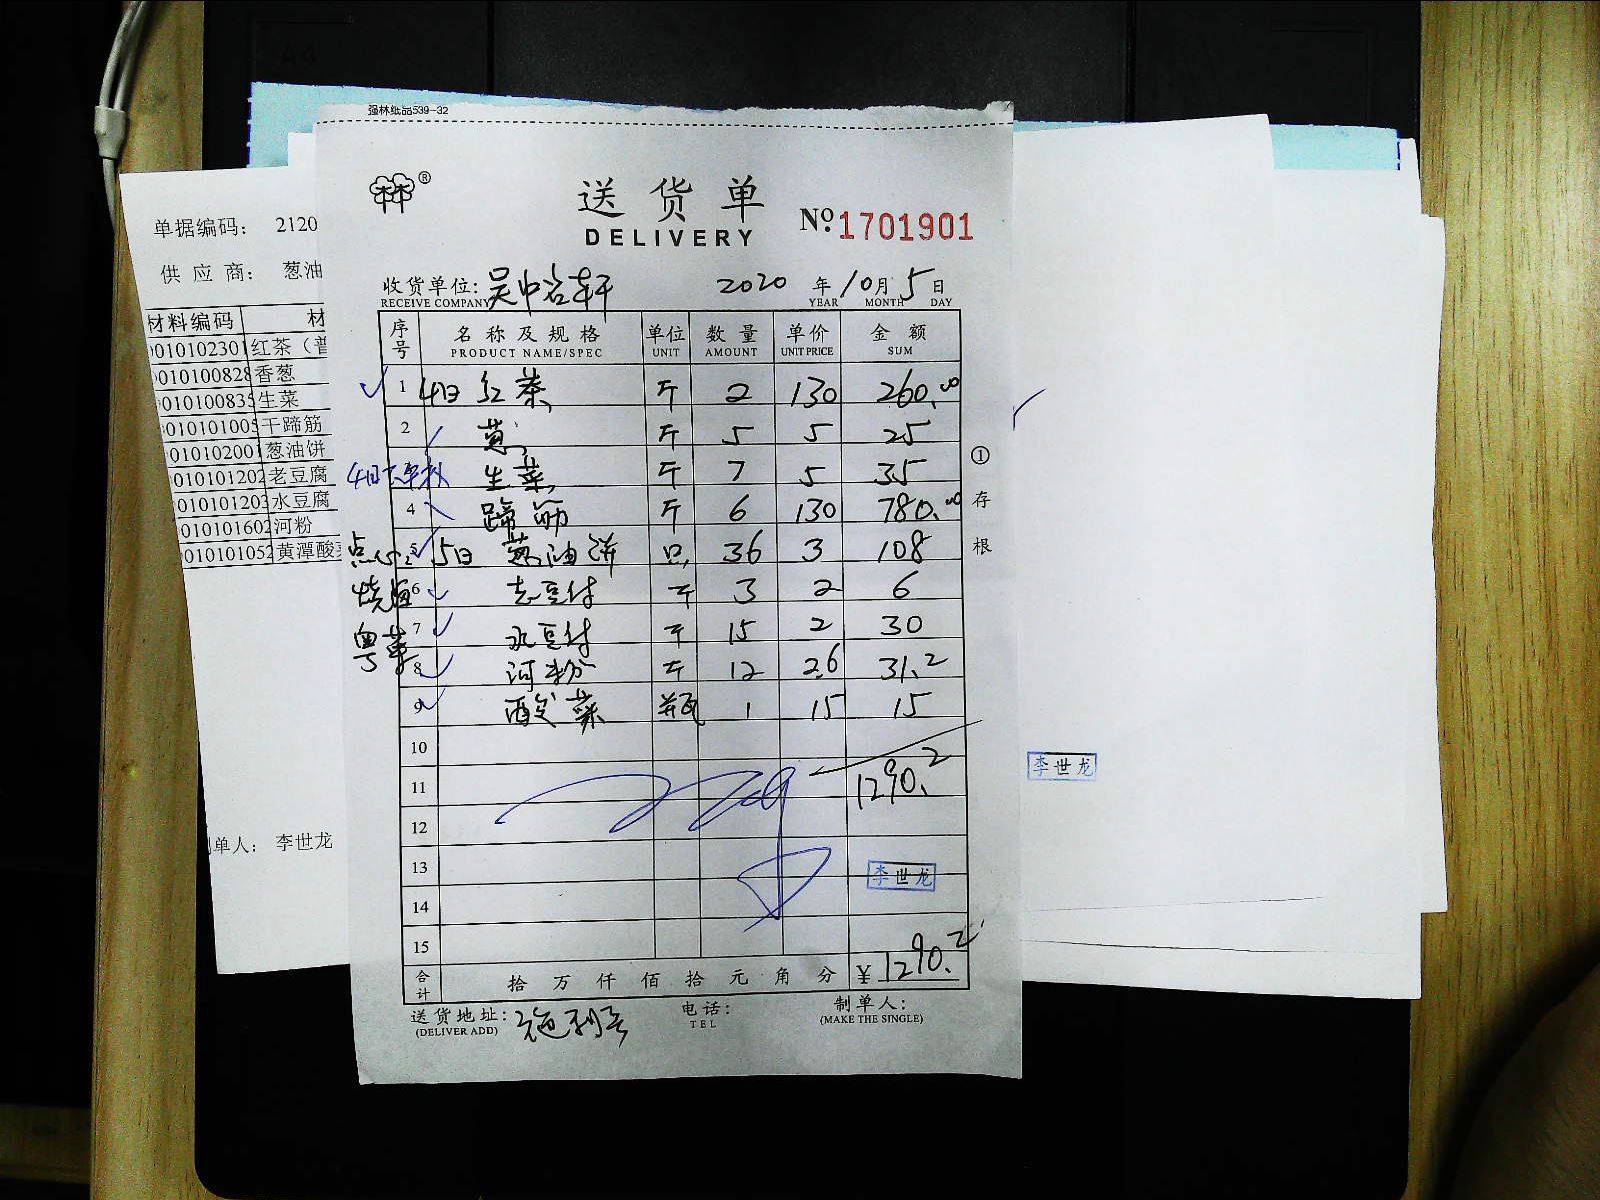 强林纸品539-32
单据编码： 2120
供 应 商： 葱油
材料编码 材
010102301 红茶（普
010100828 香葱
010100835 生菜
010101005 干蹄筋
010102001 葱油饼
010101202 老豆腐
010101203 水豆腐
010101602 河粉
010101052 黄潭酸菜
制单人： 李世龙
林林®
送 货 单
DELIVERY
No. 1701901
收货单位： 吴中 轩 2020 年 10 月 5 日
RECEIVE COMPANY YEAR MONTH DAY
序号 名 称 及 规 格 单位 数 量 单价 金 额
PRODUCT NAME/SPEC UNIT AMOUNT UNIT PRICE SUM
1 4日 红茶 斤 2 130 260.00
2 葱 斤 5 5 25
4日下单补 生菜 斤 7 5 35
4 蹄筋 斤 6 130 780.00
点心 5 5日 葱油饼 只 36 3 108
烧腊 6 老豆付 斤 3 2 6
粤菜 7 水豆付 斤 15 2 30
8 河粉 斤 12 2.6 31.2
9 酸菜 瓶 1 15 15
10
11 1290.2
12
13 李世龙
14
15
合计 拾 万 仟 佰 拾 元 角 分 ¥ 1290.2
送货地址： 电话： 制单人：
(DELIVER ADD) TEL (MAKE THE SINGLE)
① 存根
李世龙